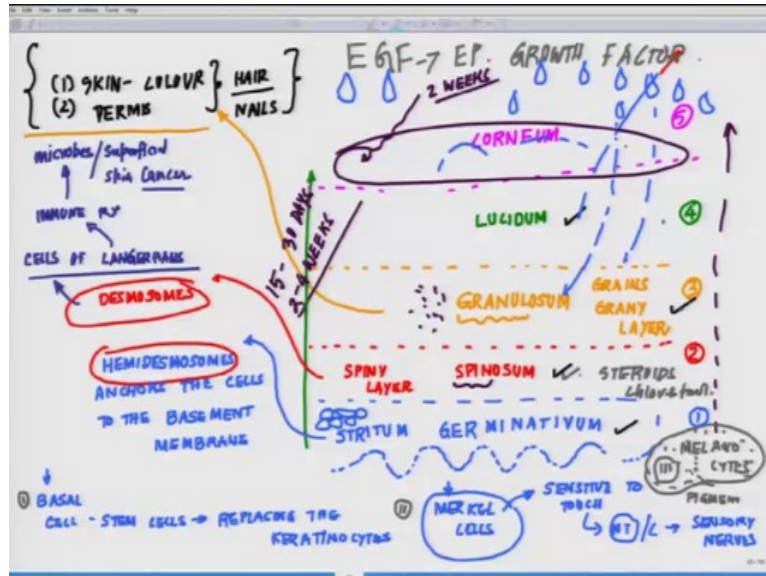 EGF → EP. GROWTH FACTOR
(1) SKIN-COLOUR
(2) PERMB
HAIR
NAILS
2 WEEKS
⑤
CORNEUM
microbes/superficial
skin Cancer
IMMUNE RX
CELLS OF LANGERHANS
DESMOSOMES
HEMIDESMOSOMES
ANCHORS THE CELLS
TO THE BASEMENT
MEMBRANE
15-30 DAYS
2-4 WEEKS
LUCIDUM
④
GRANULOSUM
GRAINS
GRANY
LAYER
③
SPINY
LAYER
SPINOSUM
STEROIDS
②
STRITUM GERMINATIVUM
①
MELANO
CYTES
III
PIGMEN
① BASAL
CELL - STEM CELLS → REPLACING THE
KERATINOCYTES
II
MERKEL
CELLS
SENSITIVE TO
TOUCH
MT/C → SENSORY
NERVES